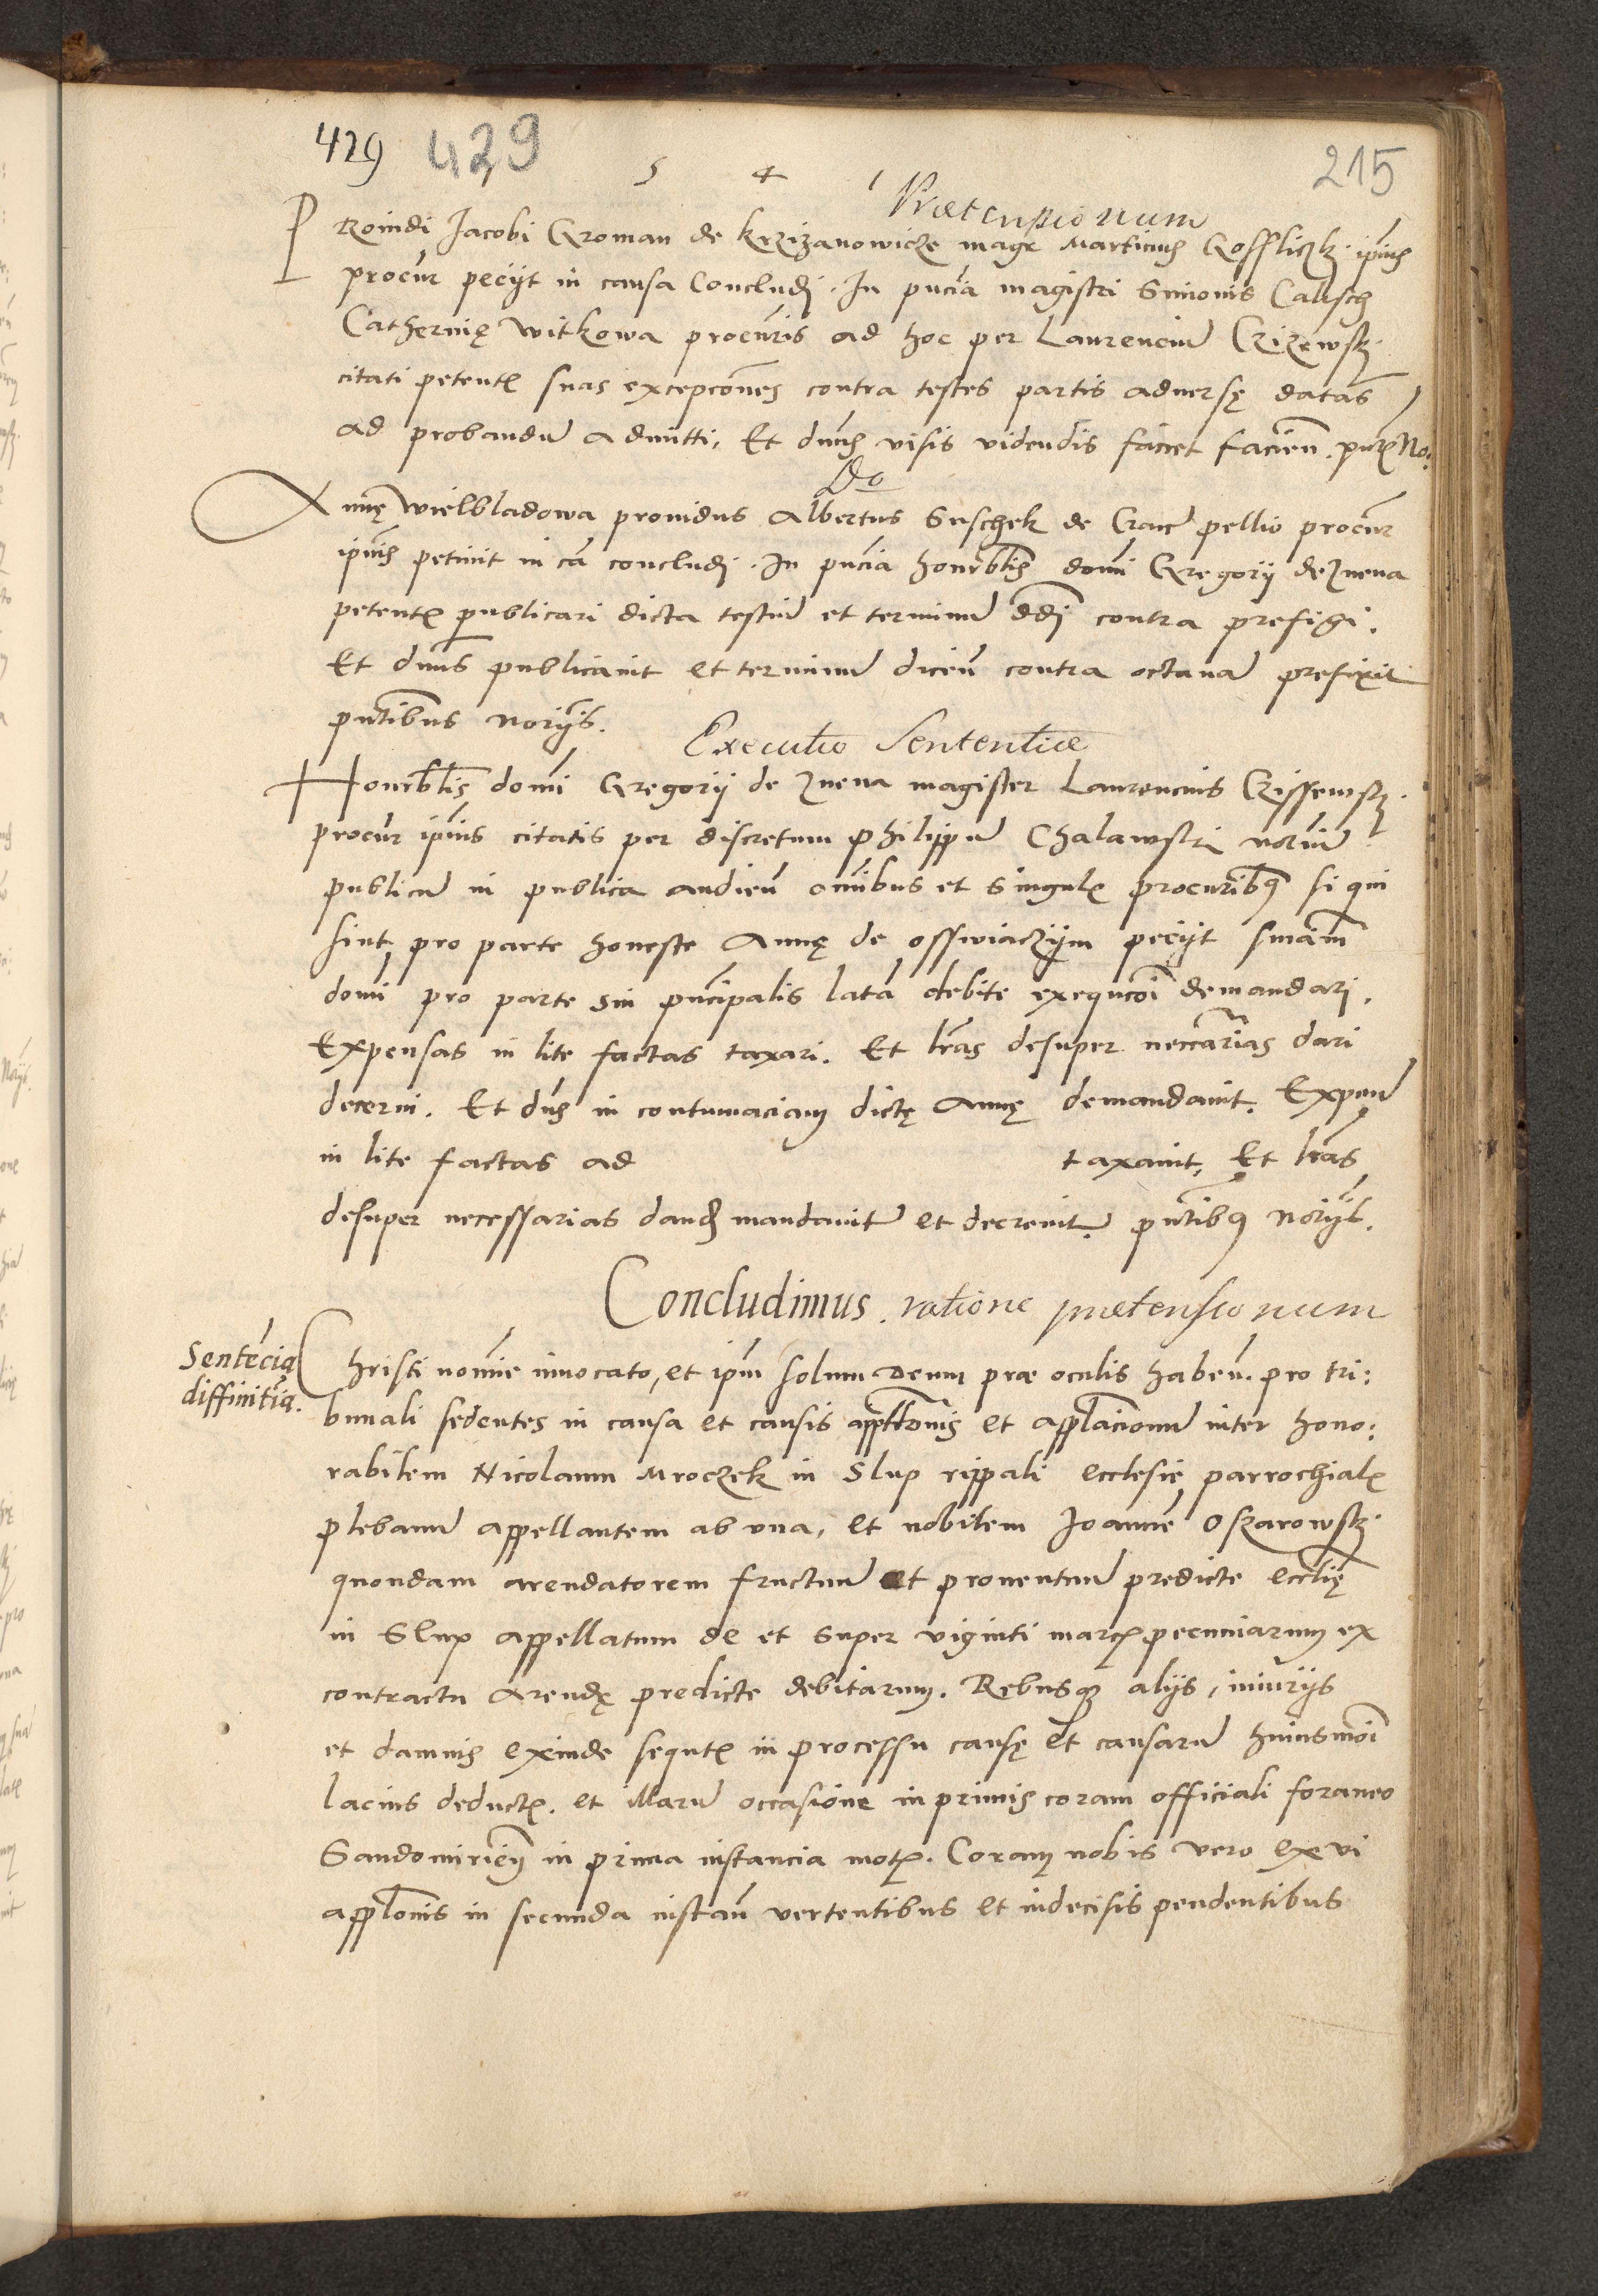 429 429 215
5 4 1
Prætensionum
PRouidi Jacobi Groman de Krzizanowicze magr Martinus Gossliczk. ipius
procur peciit in causa Concludi. In pncia magistri Simonis Calisch
Catherinę Witkowa procuris ad hoc per Laurenciu Crizewsk.
citati petentis suas excepcones contra testes partis aduersę datas
ad probandu admitti. Et dnus visis videndis faciet facien. pntibus No.
Do
Annę Wielbladowa prouidus Albertus Suschek de Crac pellio procur
ipius petiuit in ca concludi. In pncia honrablis domi Gregorij de Znena
petentis publicari dicta testiu et terminu ddi contra prefigi.
Et dnus publicauit et terminu dicen contra octaua prefixit
pntibus norijs.
Executio Sententiæ
Honrablis domi Gregorij de Znena magister Laurencius Crissewsk.
procur ipius citatis per discretum Philippu Chalawski notriu
publicu in publica audien omnibus et singulis procuribus si qui
sint pro parte honeste Annę de osswiaczijm peciit sniam
domi pro parte sui pncipalis lata debite exequcoi demandari.
Expensas in lite factas taxari. Et lras desuper neccarias dari
decerni. Et dns in contumaciam dictę Annę demandauit. Expen
in lite factas ad taxauit. Et lras
desuper necessarias dand mandauit et decreuit. pntibus norijs.
Concludimus. ratione prætensionum
Sentecia
diffinitiua.
Christi nomie inuocato, et ipm solum Deum præ oculis haben. pro tri:
bunali sedentes in causa et causis appellonis et applacionu inter hono:
rabilem Nicolaum Mroczek in Slup rippali ecclesię parrochialis
plebanu appellantem ab vna, et nobilem Joanne Oszarowsk.
quondam arendatorem fructuu et prouentuu predicte ecclię
in Slup appellatum de et super viginti marcis pecuniarum ex
contractu Arendę predicte debitarum. Rebusque alijs, iniurijs
et damnis exinde sequtis in processu causę et causaru huiusmoi
lacius deductis. et illaru occasione in primis coram officiali foraneo
Sandomirien in prima instancia motis. Coram nobis vero ex vi
applonis in secunda instan vertentibus et indecisis pendentibus